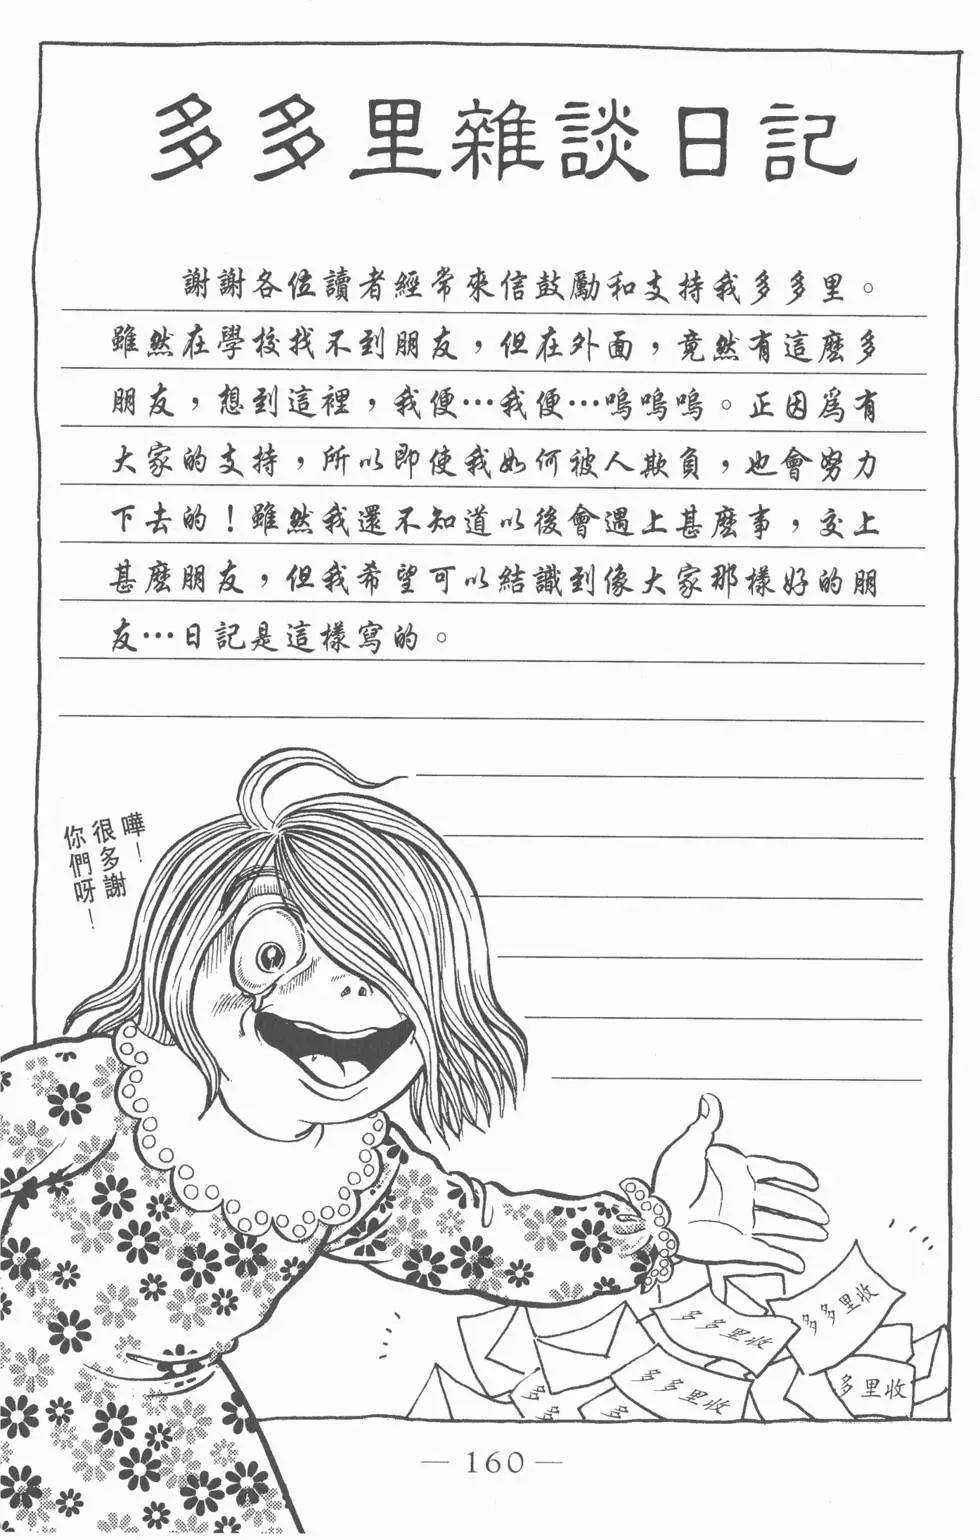 多多里雜談日記
謝謝各位讀者經常來信鼓勵和支持我多多里。
雖然在學校找不到朋友，但在外面，竟然有這麼多
朋友，想到這裡，我便…我便…嗚嗚嗚。正因為有
大家的支持，所以即使我如何被人欺負，也會努力
下去的！雖然我還不知道以後會遇上甚麼事，交上
甚麼朋友，但我希望可以結識到像大家那樣好的朋
友…日記是這樣寫的。
嘩！
很多謝
你們呀！
多多里收
多多里收
多多里收
多里收
多多
多
— 160 —